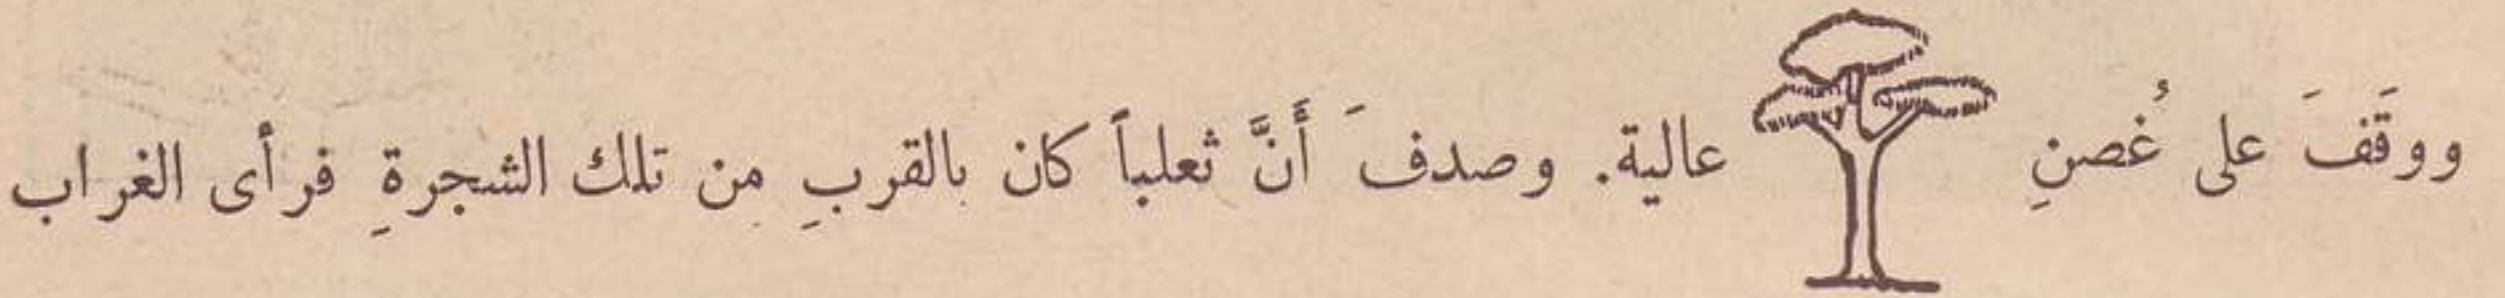 ووقَفَ على غُصنِ عالية. وصدفَ أَنَّ ثعلباً كان بالقربِ من تلك الشجرةِ فرأى الغراب